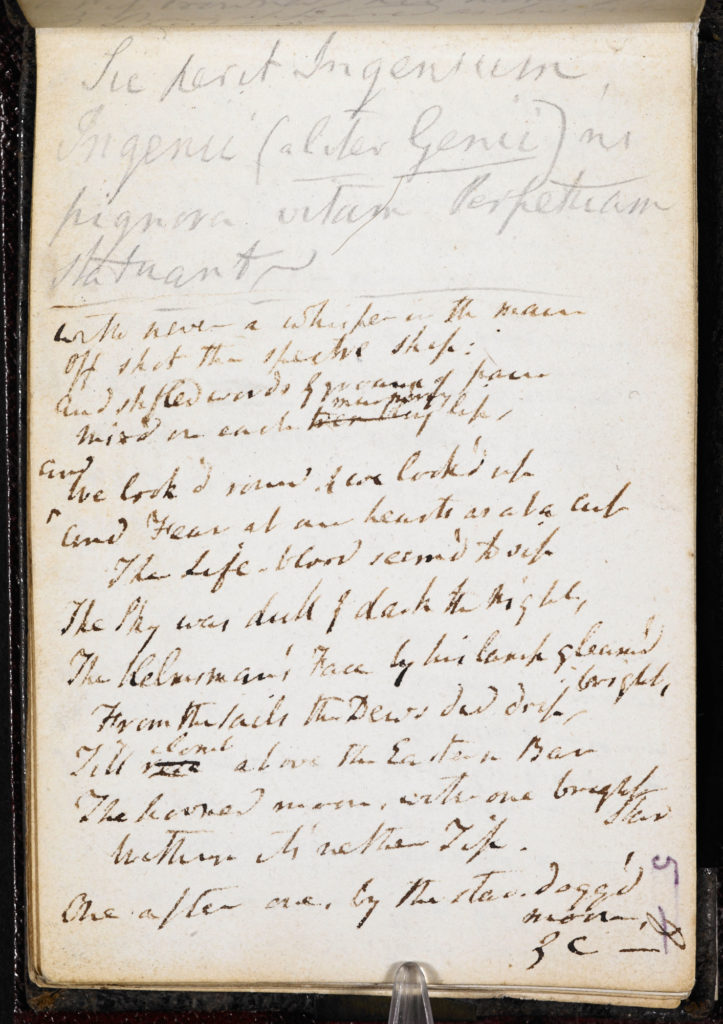 Sic perit Ingenium,
Ingenii (aliter Genii) ni
pignora vitam Perpetuam
statuant
with never a whisper in the main
Off shot the spectre ship:
And stifled words & groans of pain
mix'd on each murmuring trembling lip,
And
We look'd round & we look'd up
And Fear at our hearts as at a cup
The Life-blood seem'd to sip
The Sky was dull & dark the Night,
The Helmsman's Face by his lamp gleam'd
bright,
From the sails the Dews did drip,
Till clomb above the Eastern Bar
The horned moon, with one bright
Star
Within its nether Tip.
One after one, by the star-dogg'd
moon,
&c —